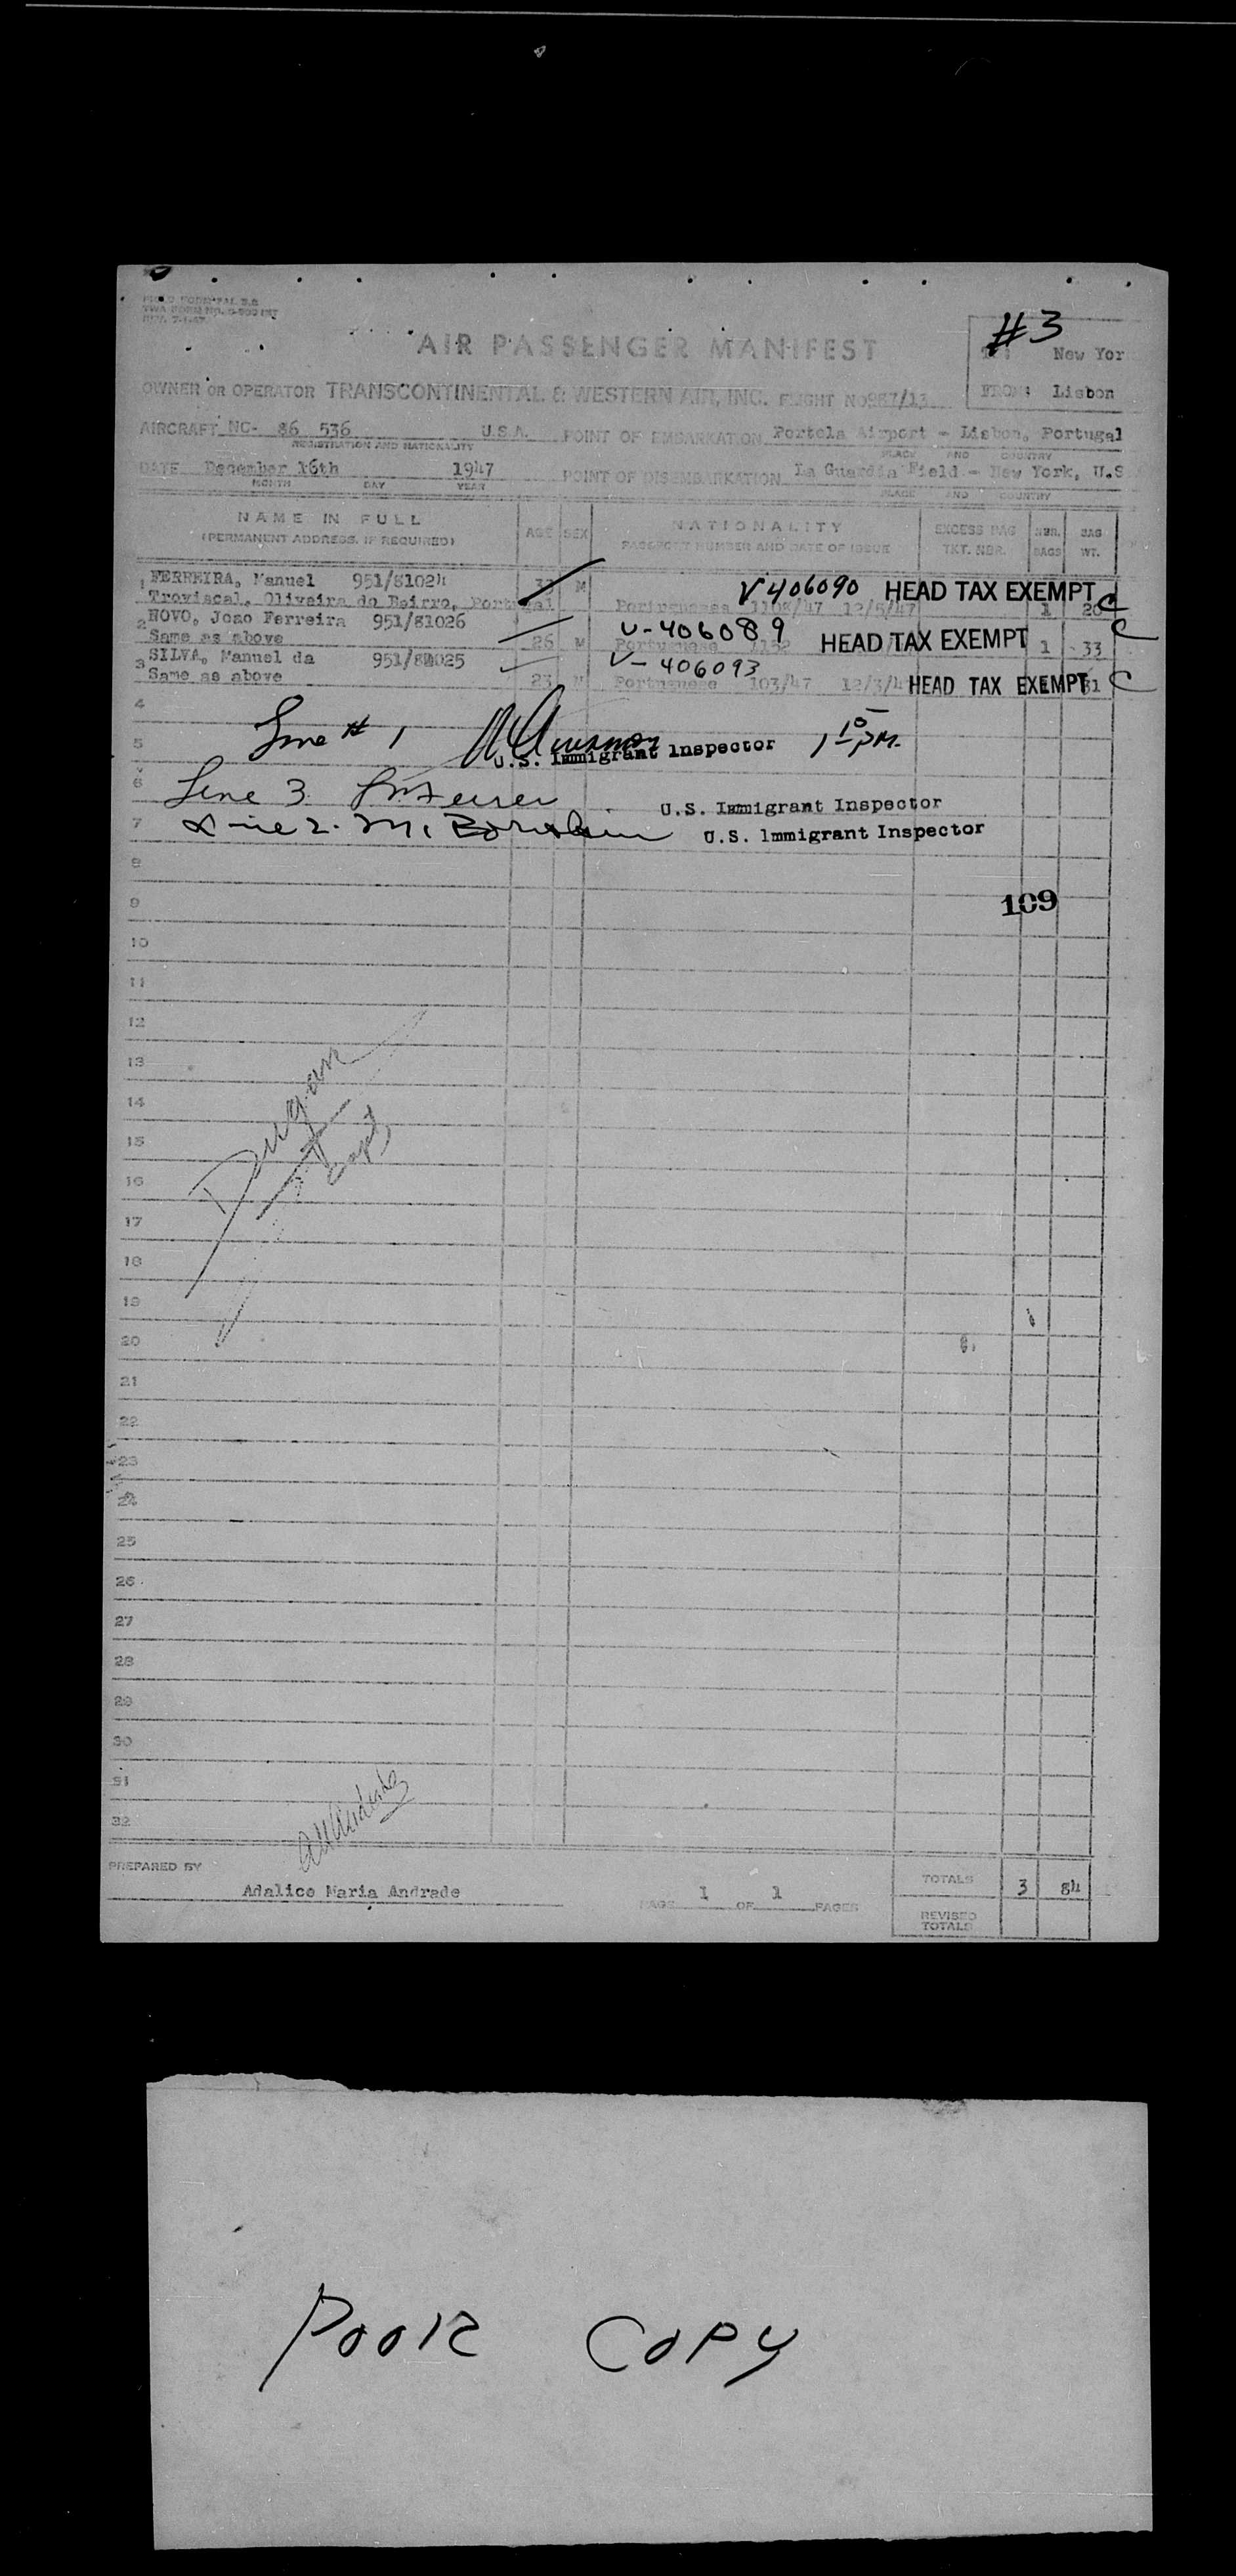 #3
AIR PASSENGER MANIFEST
New Yor
FROM: Lisbon
OWNER OR OPERATOR TRANSCONTINENTAL & WESTERN AIR, INC. FLIGHT NO 987/13
AIRCRAFT NC- 86 536 U.S.A. POINT OF EMBARKATION Portela Airport - Lisbon, Portugal
REGISTRATION AND NATIONALITY PLACE AND COUNTRY
DATE December 16th 1947 POINT OF DISEMBARKATION La Guardia Field - New York, U.S
MONTH DAY YEAR PLACE AND COUNTRY
NAME IN FULL AGE SEX NATIONALITY EXCESS BAG NBR. BAG
(PERMANENT ADDRESS. IF REQUIRED) PASSPORT NUMBER AND DATE OF ISSUE TKT. NBR. BAGS WT.
1 FERREIRA, Manuel 951/81024 M V406090 HEAD TAX EXEMPT C
Troviscal, Oliveira do Bairro, Portugal 12/5/47 1 20
2 NOVO, Joao Ferreira 951/81026 V-406089 C
Same as above 26 M Portuguese 1152 HEAD TAX EXEMPT 1 33
3 SILVA, Manuel da 951/81025 V-406093
Same as above 23 M Portuguese 103/47 12/3/4 HEAD TAX EXEMPT 31 C
4
Line # 1 1 10 P.M.
5 U.S. Immigrant Inspector
6 Line 3 U.S. Immigrant Inspector
7 Line 2. M. Bornstein U.S. Immigrant Inspector
8
9 109
10
11
12
13
14
15
16
17
18
19
20
21
22
23
24
25
26
27
28
29
30
31
32
Dugan
Capt
PREPARED BY
Adalice Maria Andrade
PAGE 1 OF 1 PAGES
TOTALS 3 84
REVISED
TOTALS
POOR COPY